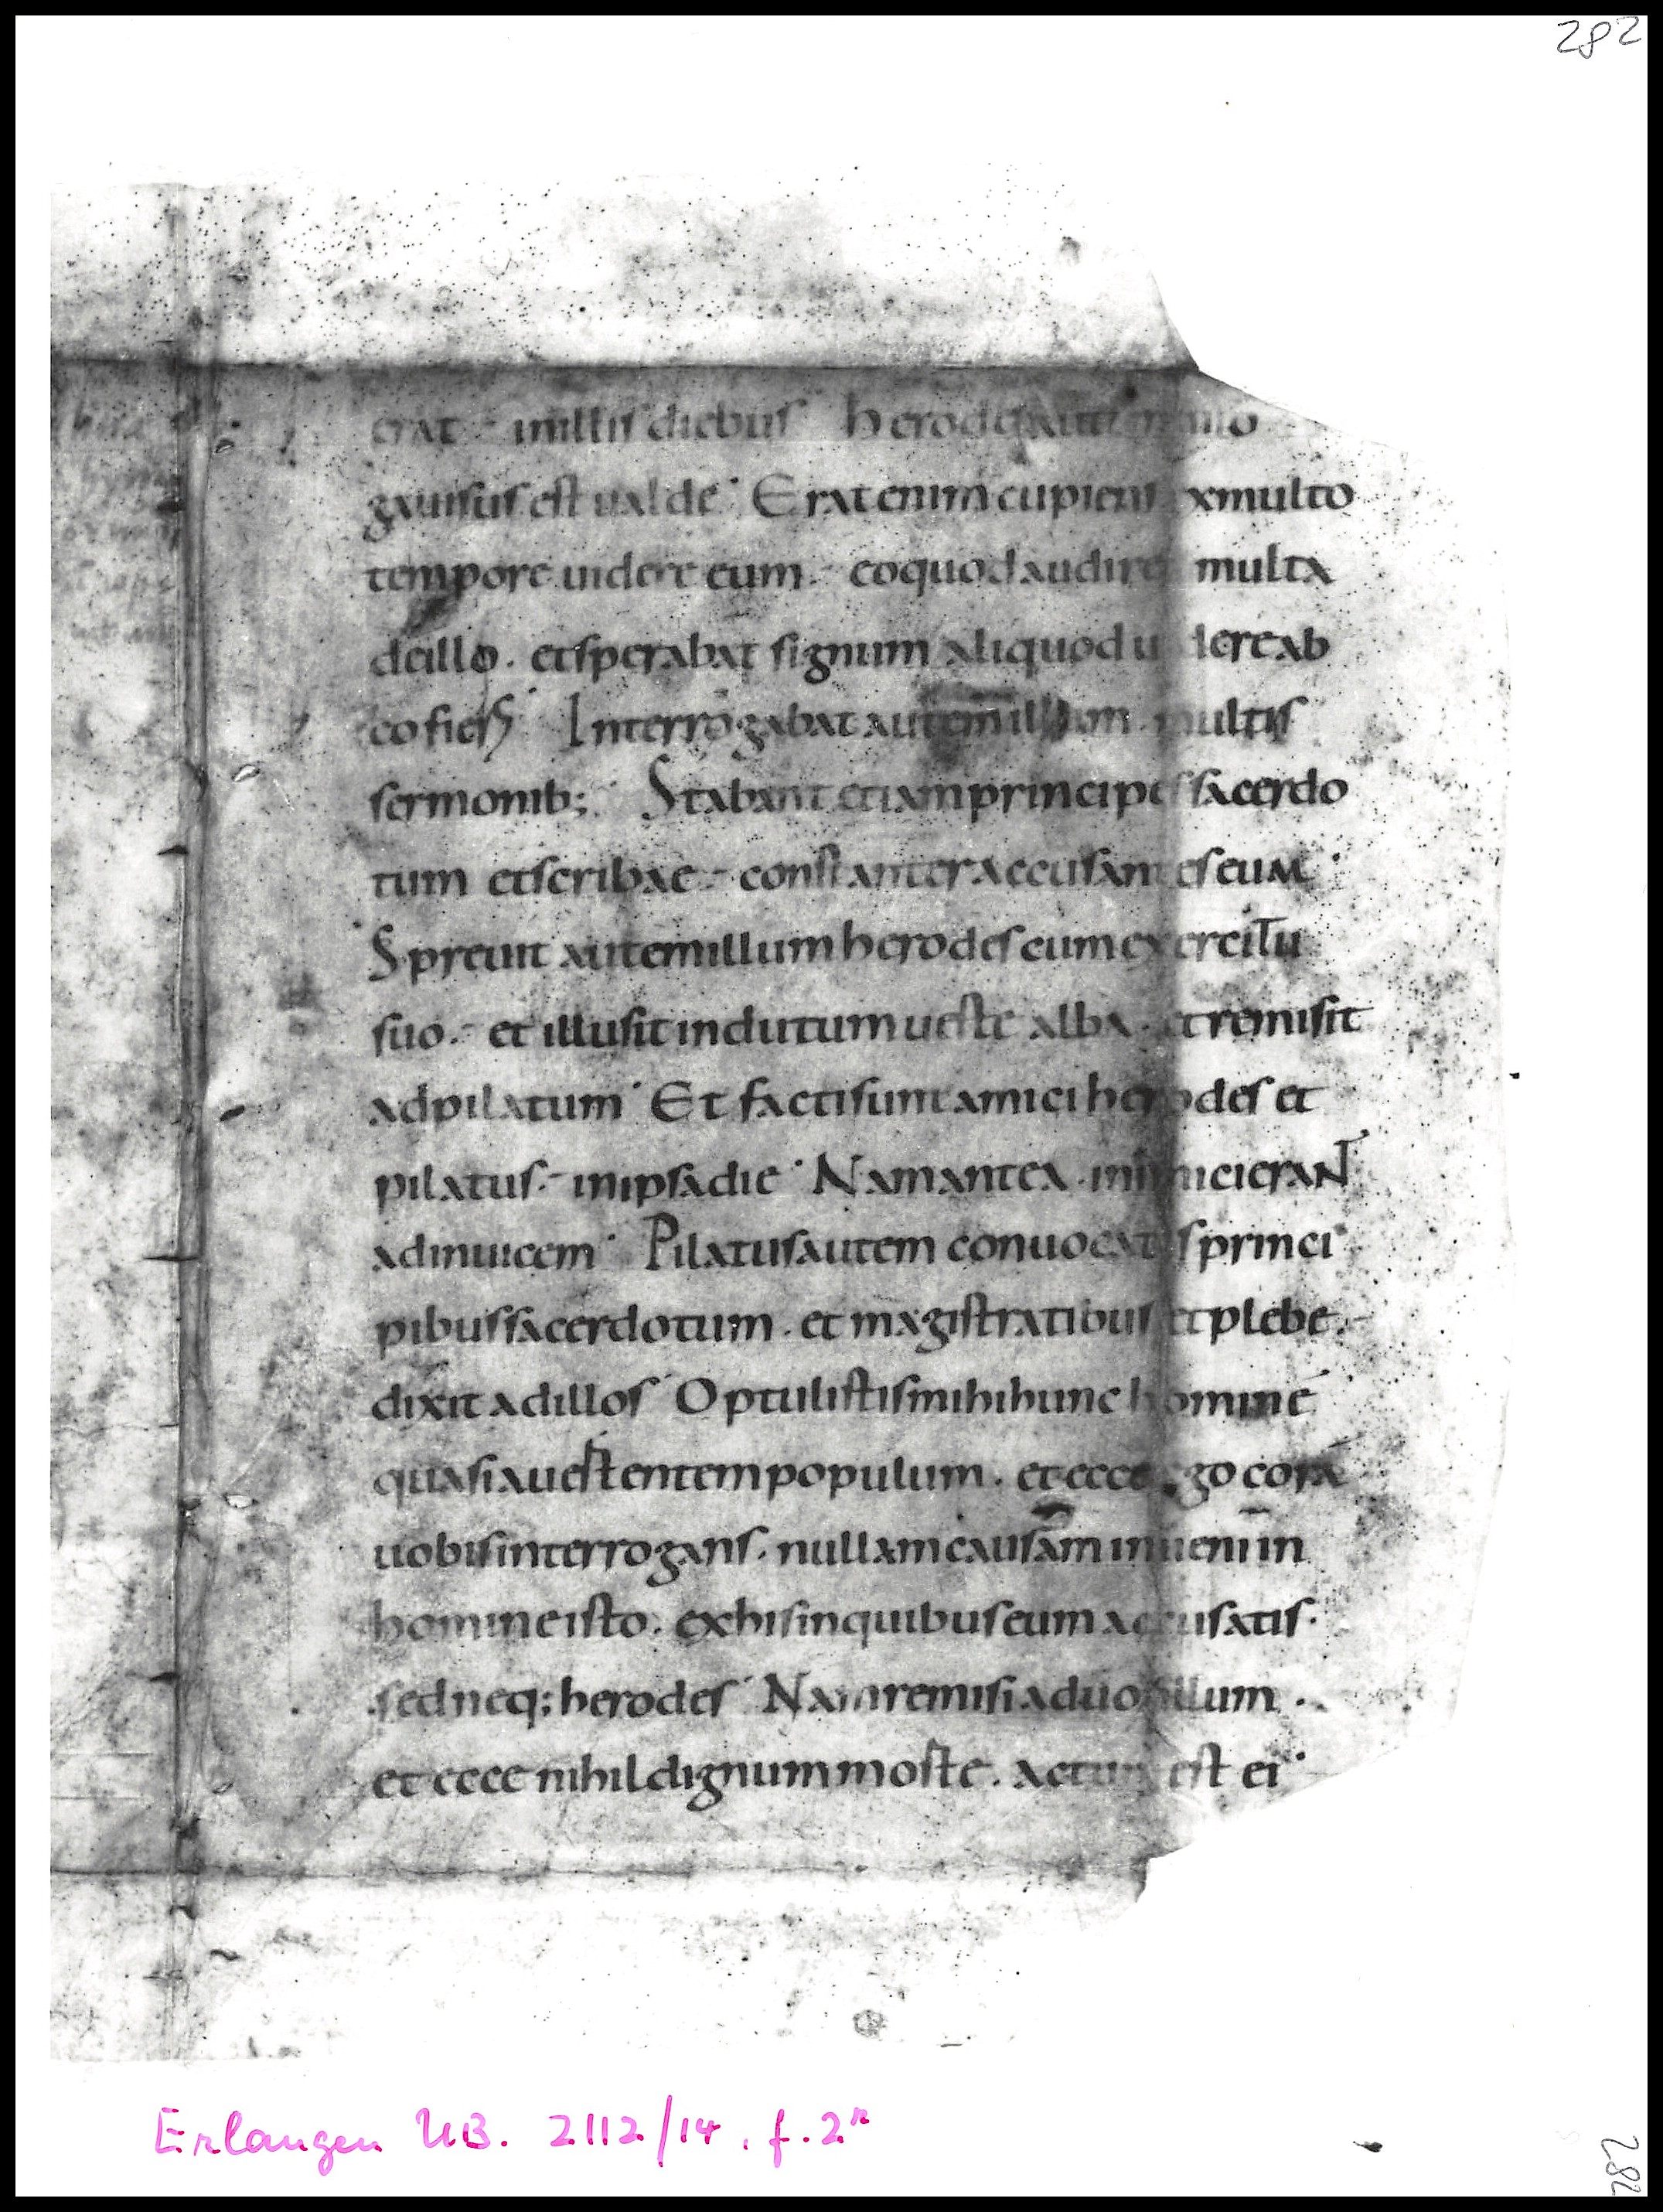 282
erat. in illis diebus Herodes
gauisus est ualde. Erat enim cupiens ex multo
tempore uidere eum. eo quod audiret multa
de illo. et sperabat signum aliquod uidere ab
eo fieri. Interrogabat autem illum. multis
sermonib; Stabant etiam principes sacerdo
tum et scribae. constanter accusantes eum.
Spreuit autem illum herodes cum exercitu
suo. et illusit indutum ueste alba. et remisit
ad pilatum. Et facti sunt amici herodes et
pilatus. in ipsa die. Nam antea. inimici erant
adinuicem. Pilatus autem conuocatis princi
pibus sacerdotum. et magistratibus et plebe.
dixit ad illos. Optulistis mihi hunc hominē
quasi auestentem populum. et ecce ego corā
uobis interrogans. nullam causam inueni in
homine isto. ex his in quibus eum accusatis.
sed neq; herodes. Nam remisi ad uos illum.
et ecce nihil dignum moste. actum est ei.
Erlangen UB. 2112/14, f. 2r
282